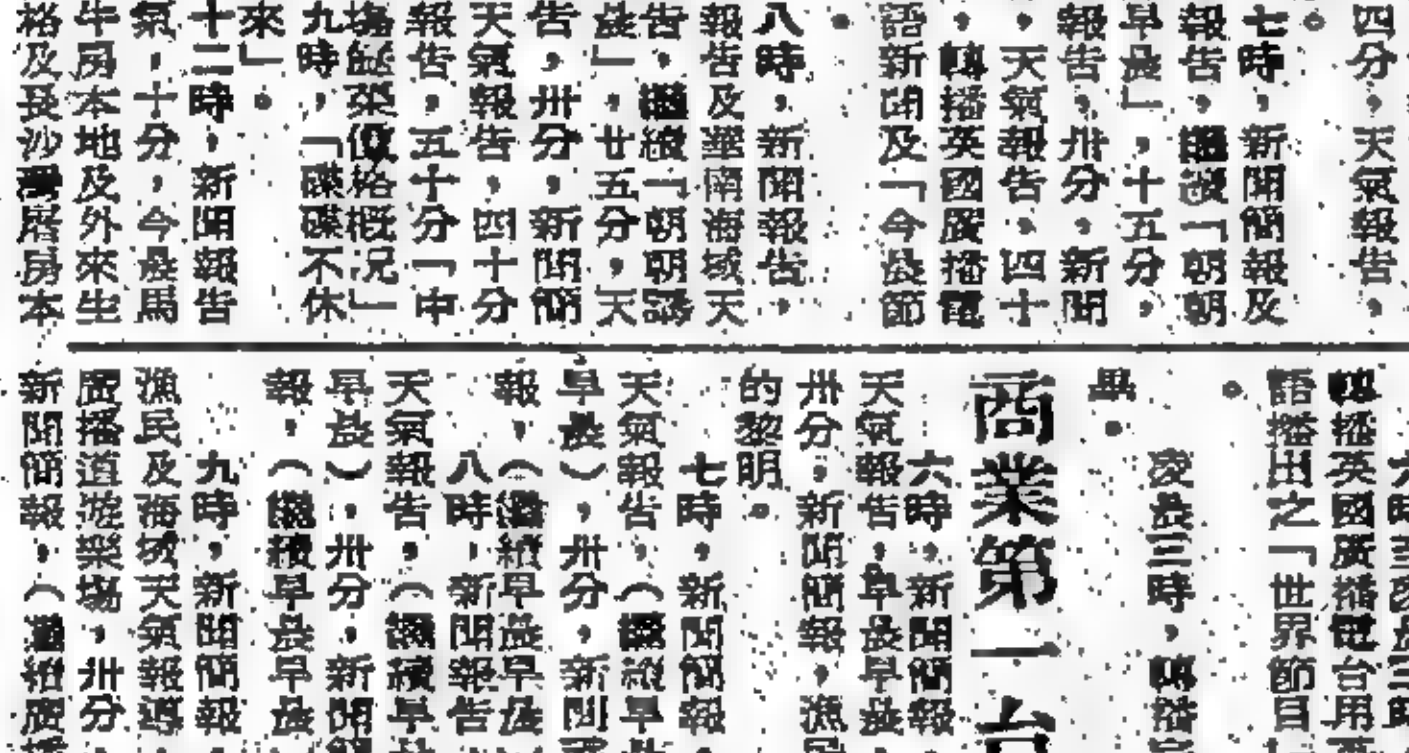 四分,天氣報告,
。
七時,新聞簡報及
報告,繼續「朝朝
早晨」,十五分,
報告,卅分,新聞
,天氣報告、四十
,轉播英國廣播電
語新聞及「今晨節
。
八時,新聞報告,
報告及華南海域天
告,繼續「朝朝
晨」,廿五分,天
告,卅分,新聞簡
天氣報告,四十分
報告,五十分「中
價格概況」
九時,「喋喋不休
來」。
十二時,新聞報告
氣,十分,今晨馬
牛房本地及外來生
格及長沙灣屠房本
轉播英國廣播電台用
語播出之「世界節目
。
凌晨三時,轉播
畢。
商業第一台
六時,新聞簡報
天氣報告,早晨早晨
卅分,新聞簡報,漁民
的黎明。
七時,新聞簡報
天氣報告,(繼續早
早晨),卅分,新聞
報,(繼續早晨早晨
八時,新聞報告
天氣報告,(繼續早
早晨),卅分,新聞
報,(繼續早晨早晨
九時,新聞簡報
漁民及海域天氣報導
廣播道遊樂場,卅分
新聞簡報,(繼續廣播